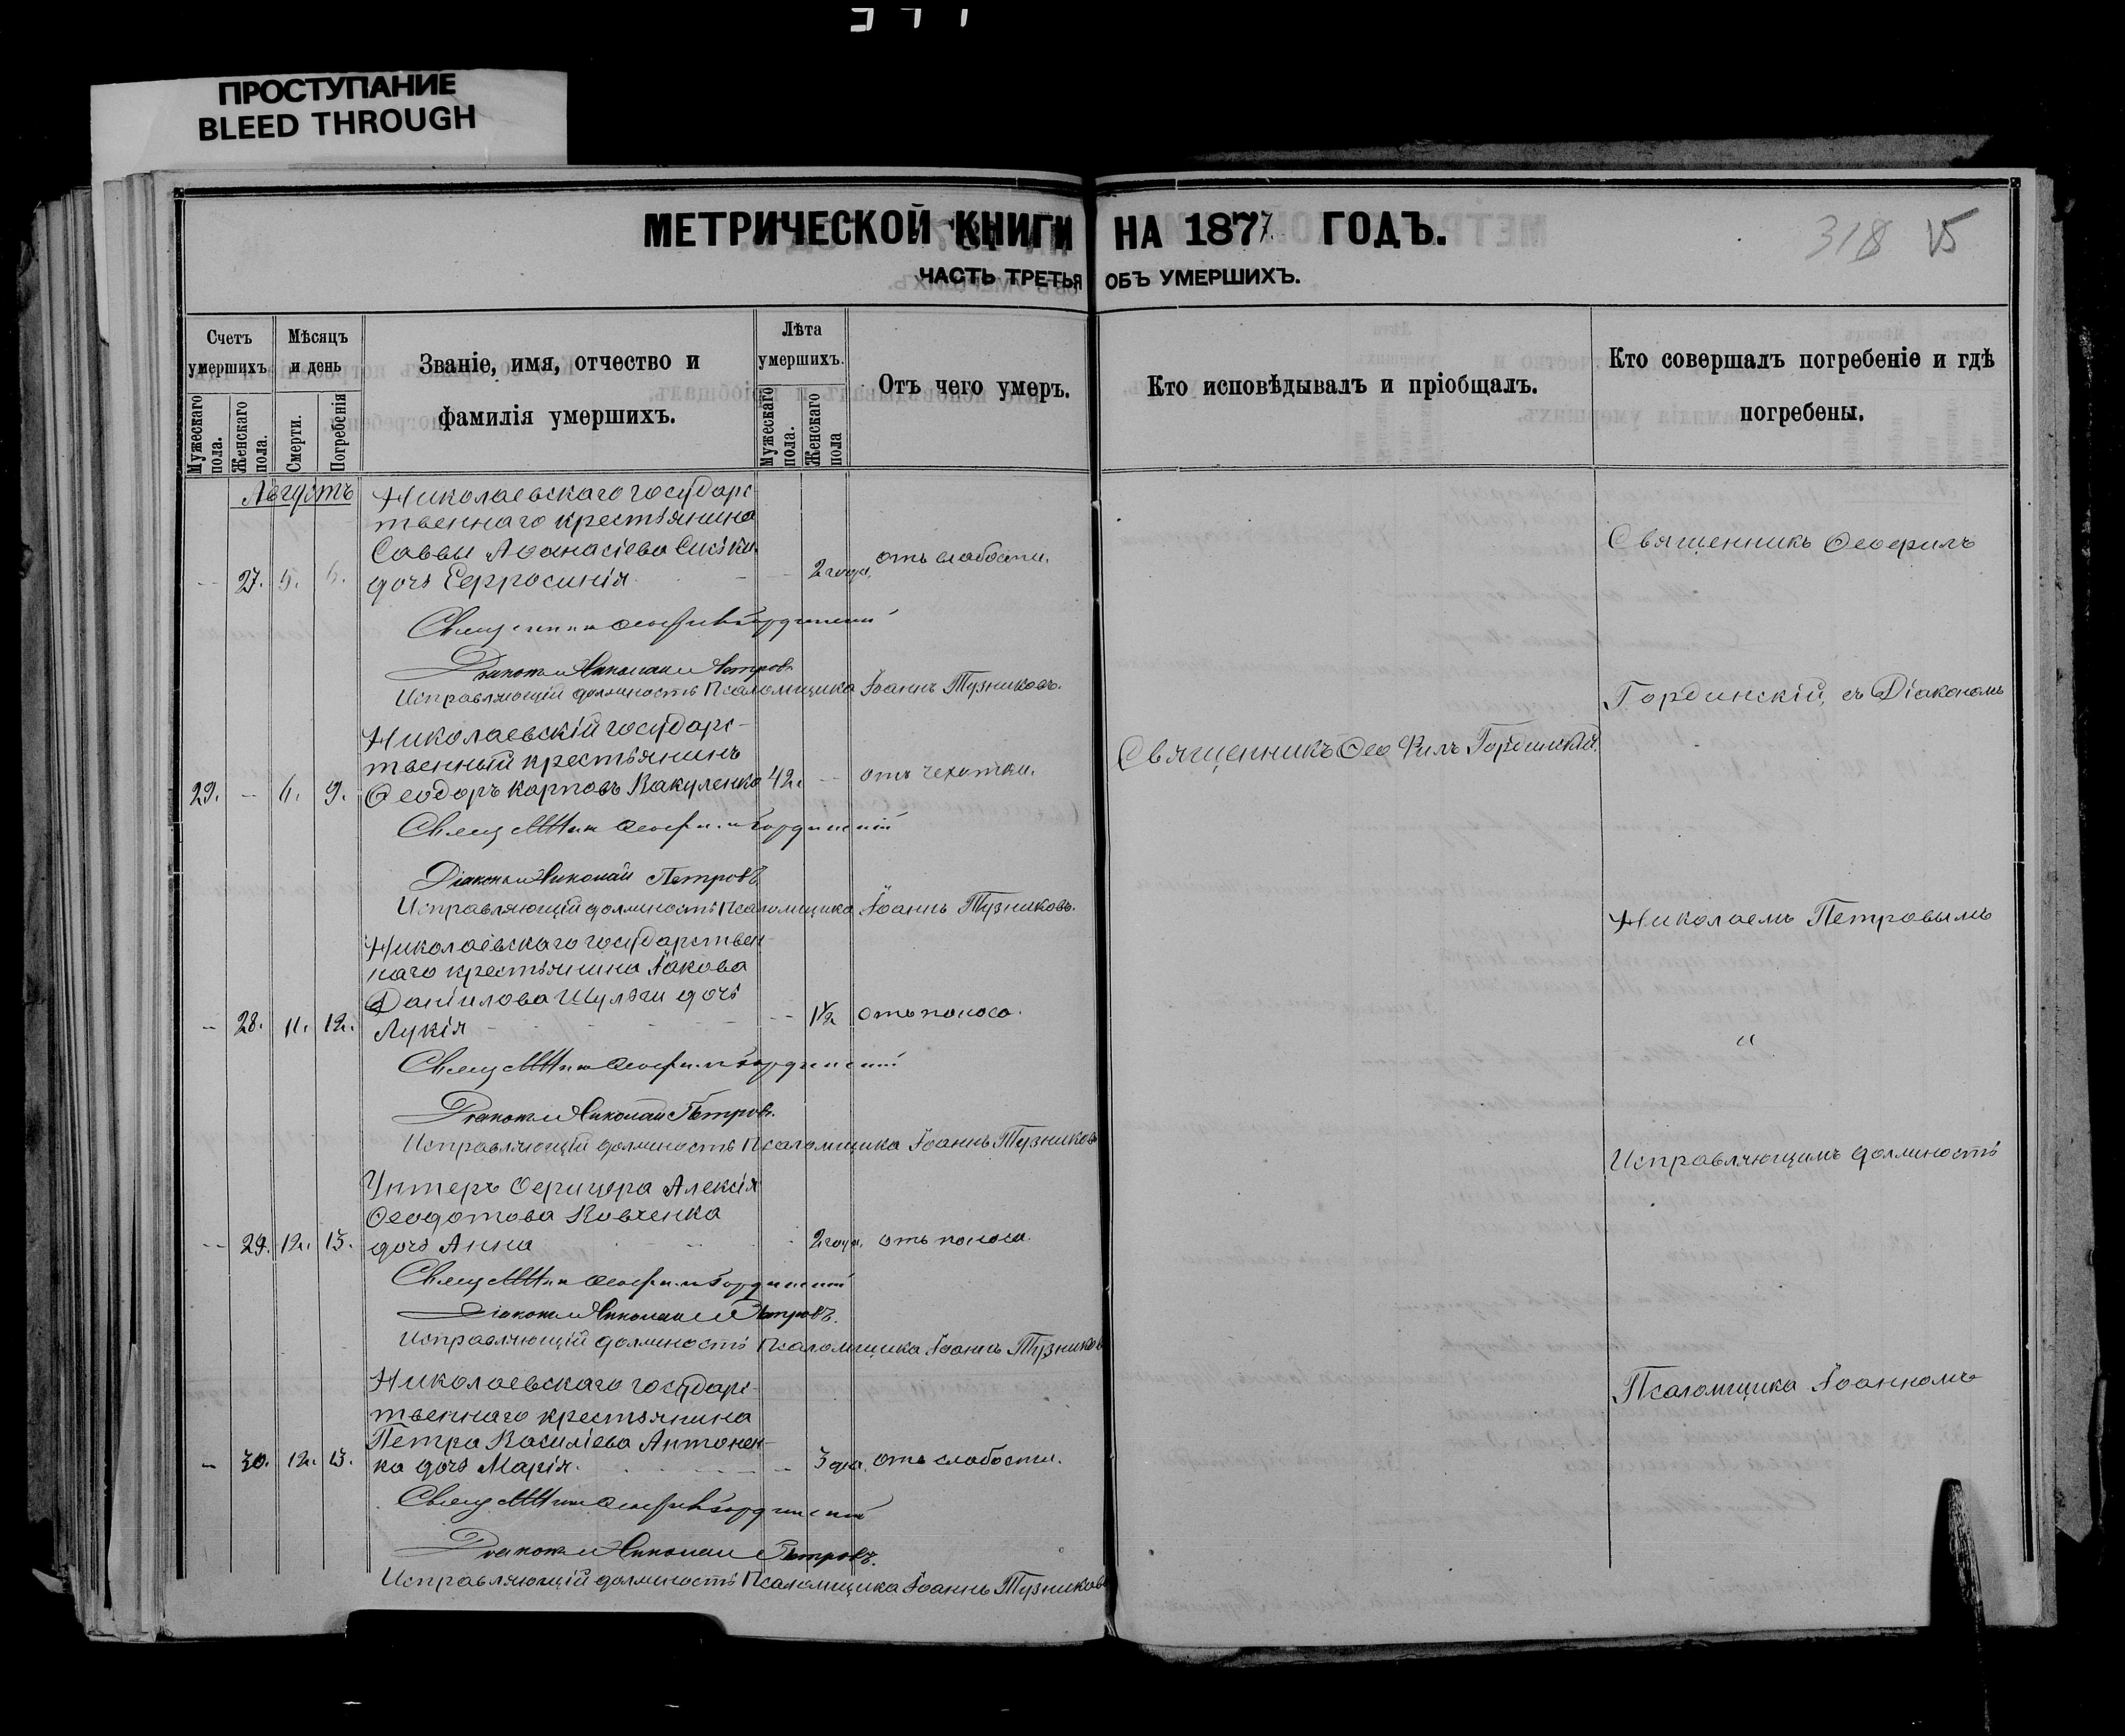 ПРОСТУПАНИЕ
BLEED THROUGH
МЕТРИЧЕСКОЙ КНИГИ НА 1877. ГОДЪ.
318 15
ЧАСТЬ ТРЕТЬЯ ОБЪ УМЕРШИХЪ.
Счетъ умершихъ.
Мужескаго пола.
Женскаго пола.
Мѣсяцъ и день
Смерти.
Погребенія
Званіе, имя, отчество и
фамилія умершихъ.
Лѣта умершихъ.
Мужескаго пола.
Женскаго пола
Отъ чего умеръ.
Кто исповѣдывалъ и пріобщалъ.
Кто совершалъ погребеніе и гдѣ
погребены.
Августъ
Николаевскаго государс-
твеннаго крестьянина
Саввы Аѳанасіева
27. 5. 6. дочь Евфросинія 2 года, отъ слабости.
Священникъ Ѳеофилъ Гординскій
Діаконъ Николай Петровъ
Исправляющій должность Псаломщика Іоаннъ Тузниковъ.
Николаевскій государс-
твенный крестьянинъ
29. - 9. Ѳеодоръ Карповъ Вакуленко 42. - отъ чехотки.
Священникъ Ѳеофилъ Гординскій
Діаконъ Николай Петровъ
Исправляющій должность Псаломщика Іоаннъ Тузниковъ.
Николаевскаго государствен-
наго крестьянина Іакова
Даніилова Шульги дочь
- 28. 11. 12. Лукія - 1½ отъ поноса.
Священникъ Ѳеофилъ Гординскій
Діаконъ Николай Петровъ.
Исправляющій должность Псаломщика Іоаннъ Тузниковъ
Унтеръ Офицера Алексія
Ѳеодотова Ковченка
- 29. 12. 13. дочь Анна 2 года, отъ поноса.
Священникъ Ѳеофилъ Гординскій
Діаконъ Николай Петровъ.
Исправляющій должность Псаломщика Іоаннъ Тузников
Николаевскаго государс-
твеннаго крестьянина
Петра Василіева Антонен-
- 30. 12. 13. ка дочь Марія. - 3 дня, отъ слабости.
Священникъ Ѳеофилъ Гординскій
Діаконъ Николай Петровъ.
Исправляющій должность Псаломщика Іоаннъ Тузников
Священникъ Ѳеофилъ Гординскій.
Священникъ Ѳеофилъ
Гординскій, съ Діакономъ
Николаемъ Петровымъ
"
Исправляющимъ должность
Псаломщика Іоанномъ